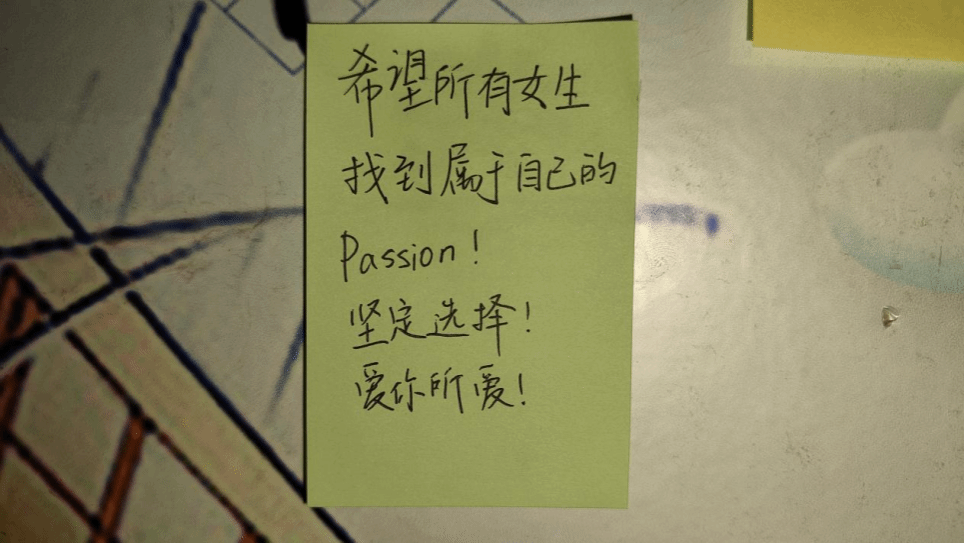 希望所有女生
找到属于自己的
Passion!
坚定选择!
爱你所爱!